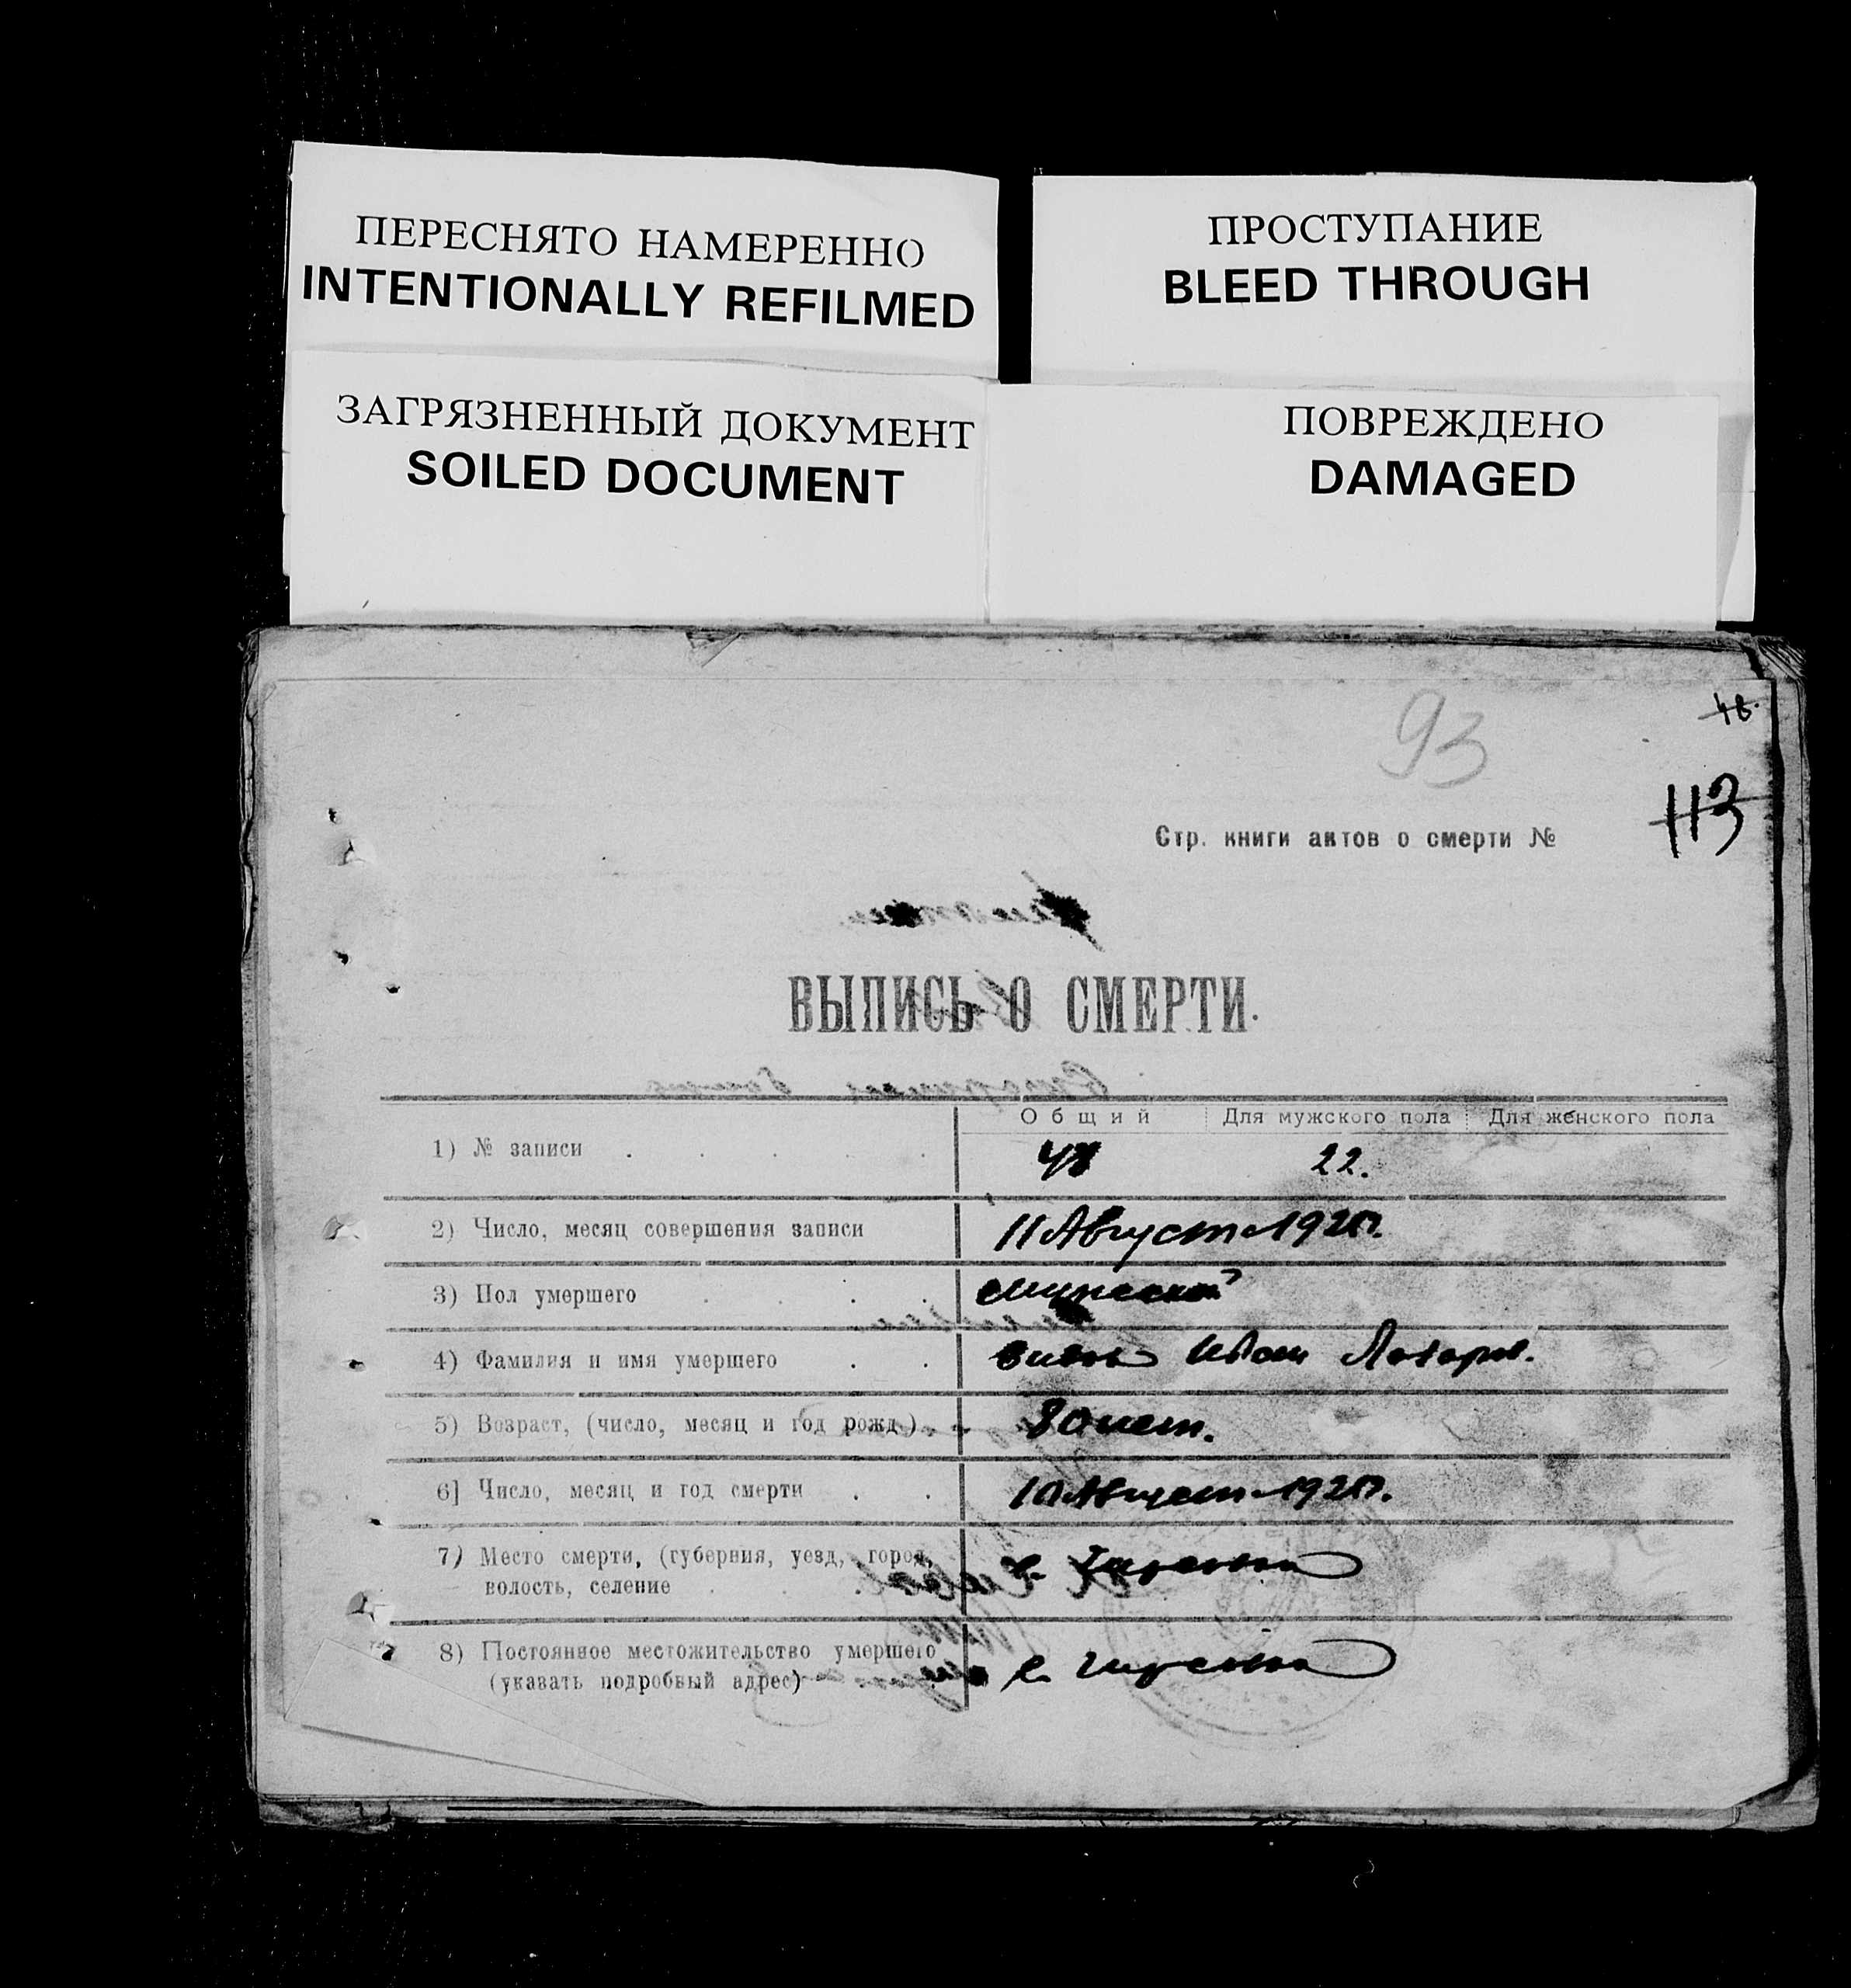 ПЕРЕСНЯТО НАМЕРЕННО
INTENTIONALLY REFILMED
ПРОСТУПАНИЕ
BLEED THROUGH
ЗАГРЯЗНЕННЫЙ ДОКУМЕНТ
SOILED DOCUMENT
ПОВРЕЖДЕНО
DAMAGED
93
113
Стр. книги актов о смерти №
ВЫПИСЬ О СМЕРТИ.
Общий Для мужского пола Для женского пола
1) № записи 22.
2) Число, месяц совершения записи 11 Августа
3) Пол умершего мужской
4) Фамилия и имя умершего Иван
5) Возраст, (число, месяц и год рожд.) лет.
6] Число, месяц и год смерти 10 Августа
7) Место смерти, (губерния, уезд, город,
волость, селение
8) Постоянное местожительство умершего
(указать подробный адрес)